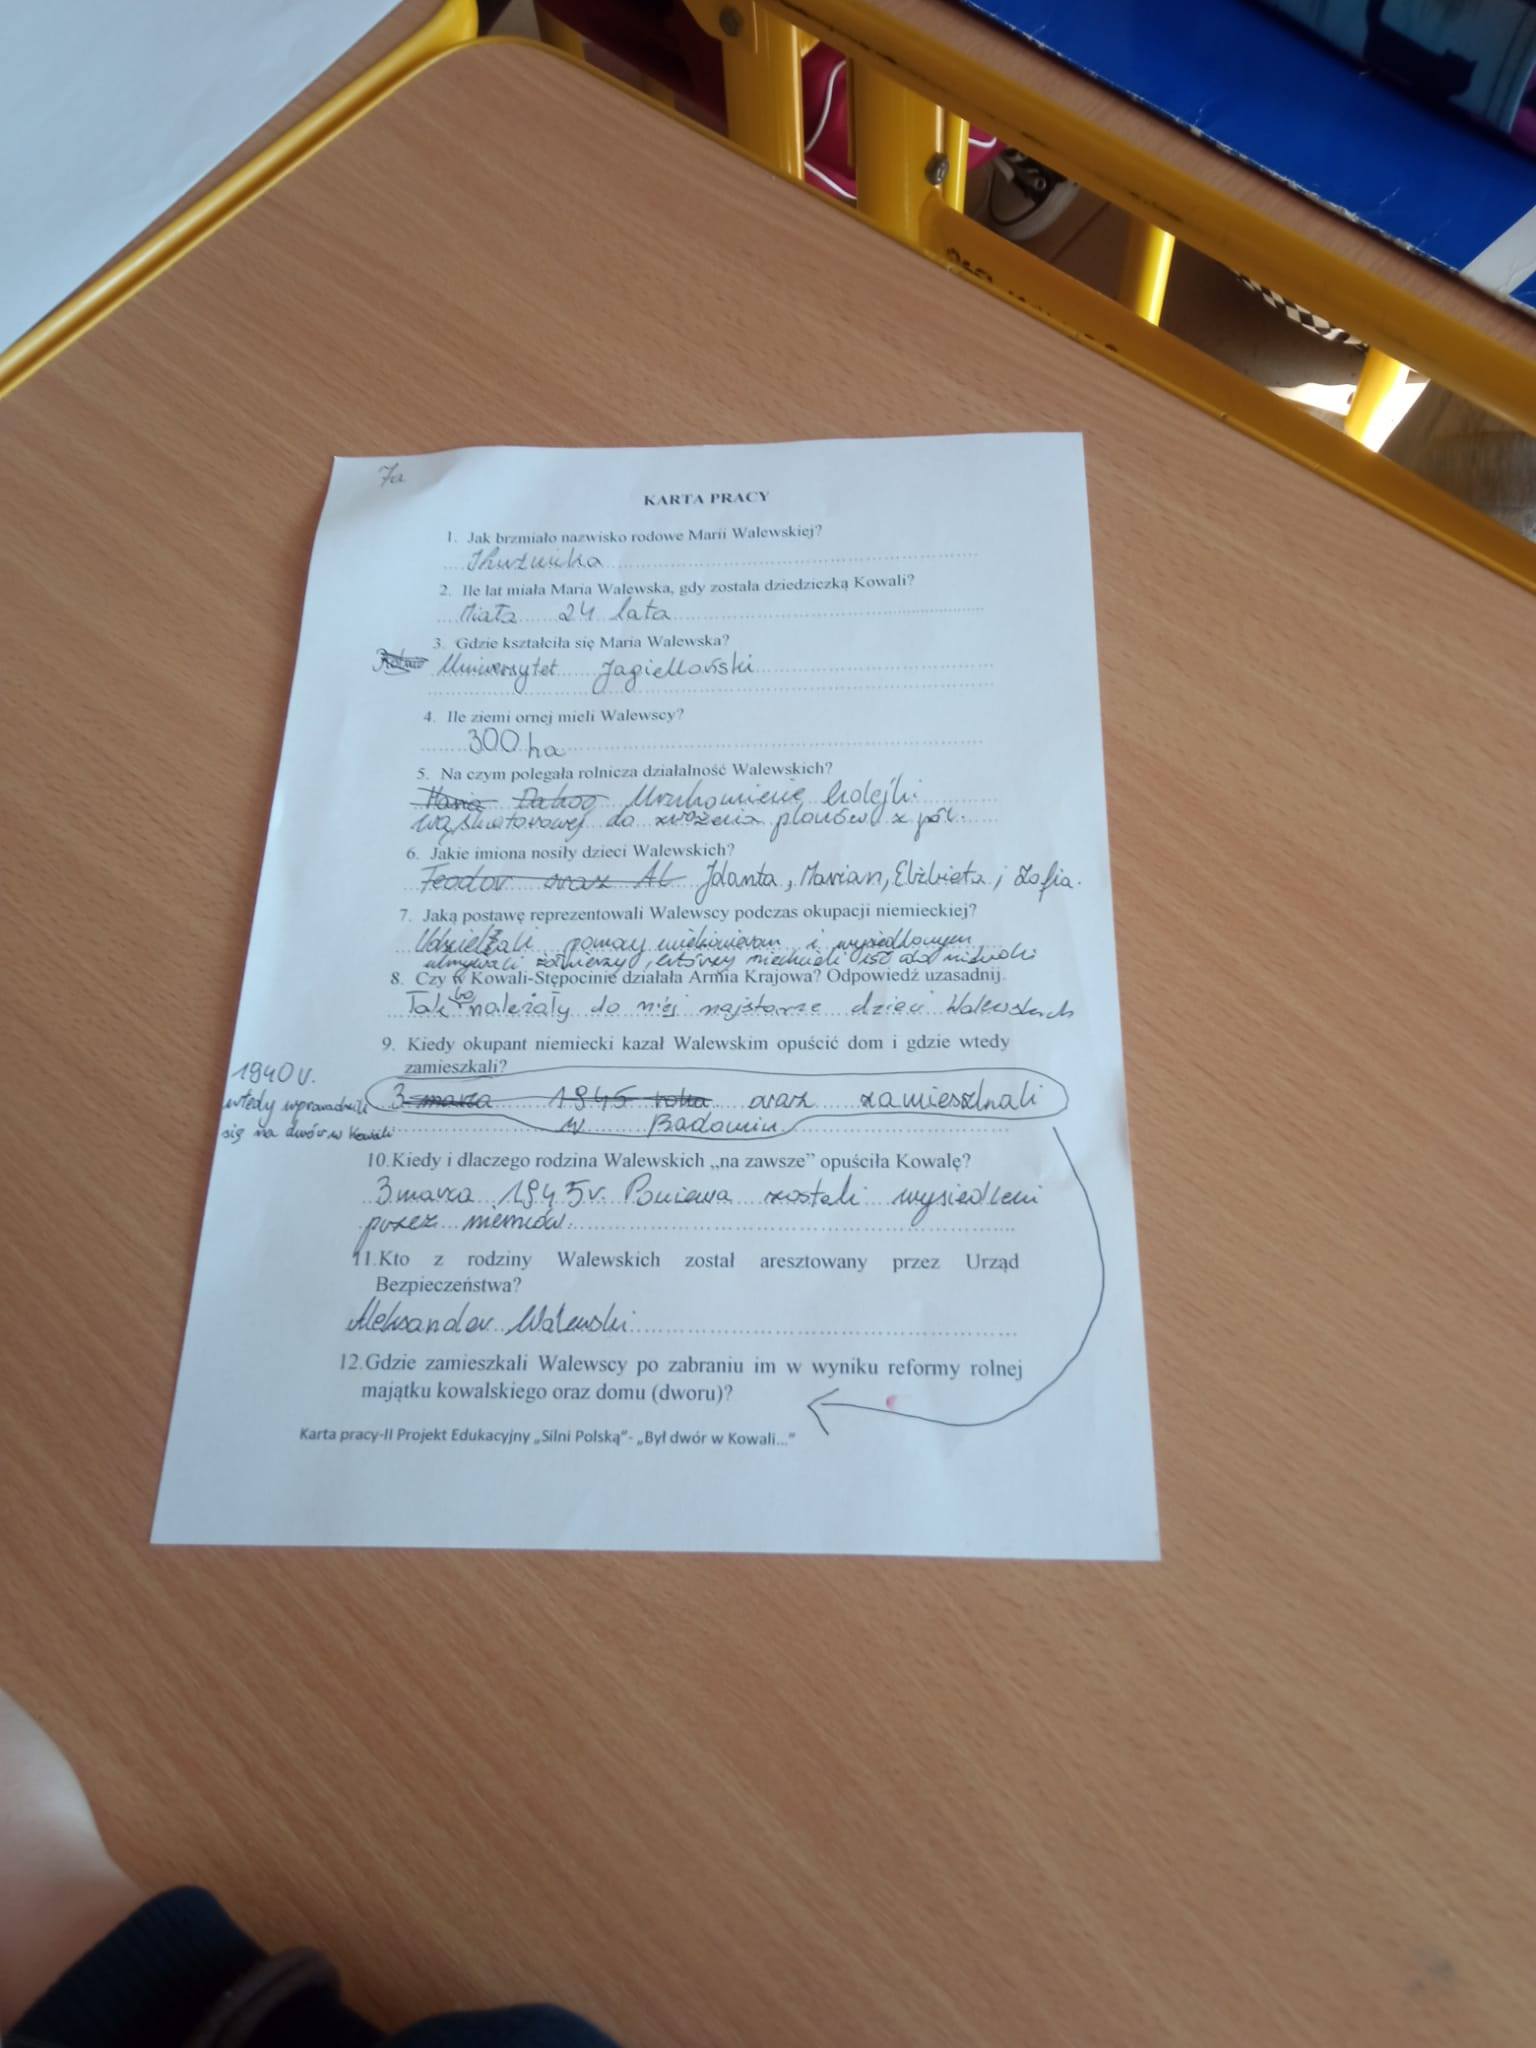 7a
KARTA PRACY
1. Jak brzmiało nazwisko rodowe Marii Walewskiej?
2. Ile lat miała Maria Walewska, gdy została dziedziczką Kowali?
Miała 24 lata
3. Gdzie kształciła się Maria Walewska?
Uniwersytet Jagielloński
4. Ile ziemi ornej mieli Walewscy?
300 ha
5. Na czym polegała rolnicza działalność Walewskich?
Maria Uruchomienie kolejki
wąskotorowej do zwożenia plonów z pól.
6. Jakie imiona nosiły dzieci Walewskich?
Teodor oraz Al Jolanta, Marian, Elżbieta i Zofia.
7. Jaką postawę reprezentowali Walewscy podczas okupacji niemieckiej?
Udzielali pomocy i wysiedlonym
ukrywali żołnierzy, którzy do niewoli
8. Czy w Kowali-Stępocinie działała Armia Krajowa? Odpowiedź uzasadnij.
Tak bo należały do niej najstarsze dzieci Walewskich
9. Kiedy okupant niemiecki kazał Walewskim opuścić dom i gdzie wtedy
zamieszkali?
1940 r.
wtedy wprowadzili
się na dwór w Kowali
3 marca 1945 roku oraz zamieszkali
w Radomiu
10. Kiedy i dlaczego rodzina Walewskich „na zawsze” opuściła Kowalę?
3 marca 1945 r. Ponieważ zostali wysiedleni
przez niemców.
11. Kto z rodziny Walewskich został aresztowany przez Urząd
Bezpieczeństwa?
Aleksander Walewski
12. Gdzie zamieszkali Walewscy po zabraniu im w wyniku reformy rolnej
majątku kowalskiego oraz domu (dworu)?
Karta pracy-II Projekt Edukacyjny „Silni Polską”- „Był dwór w Kowali...”